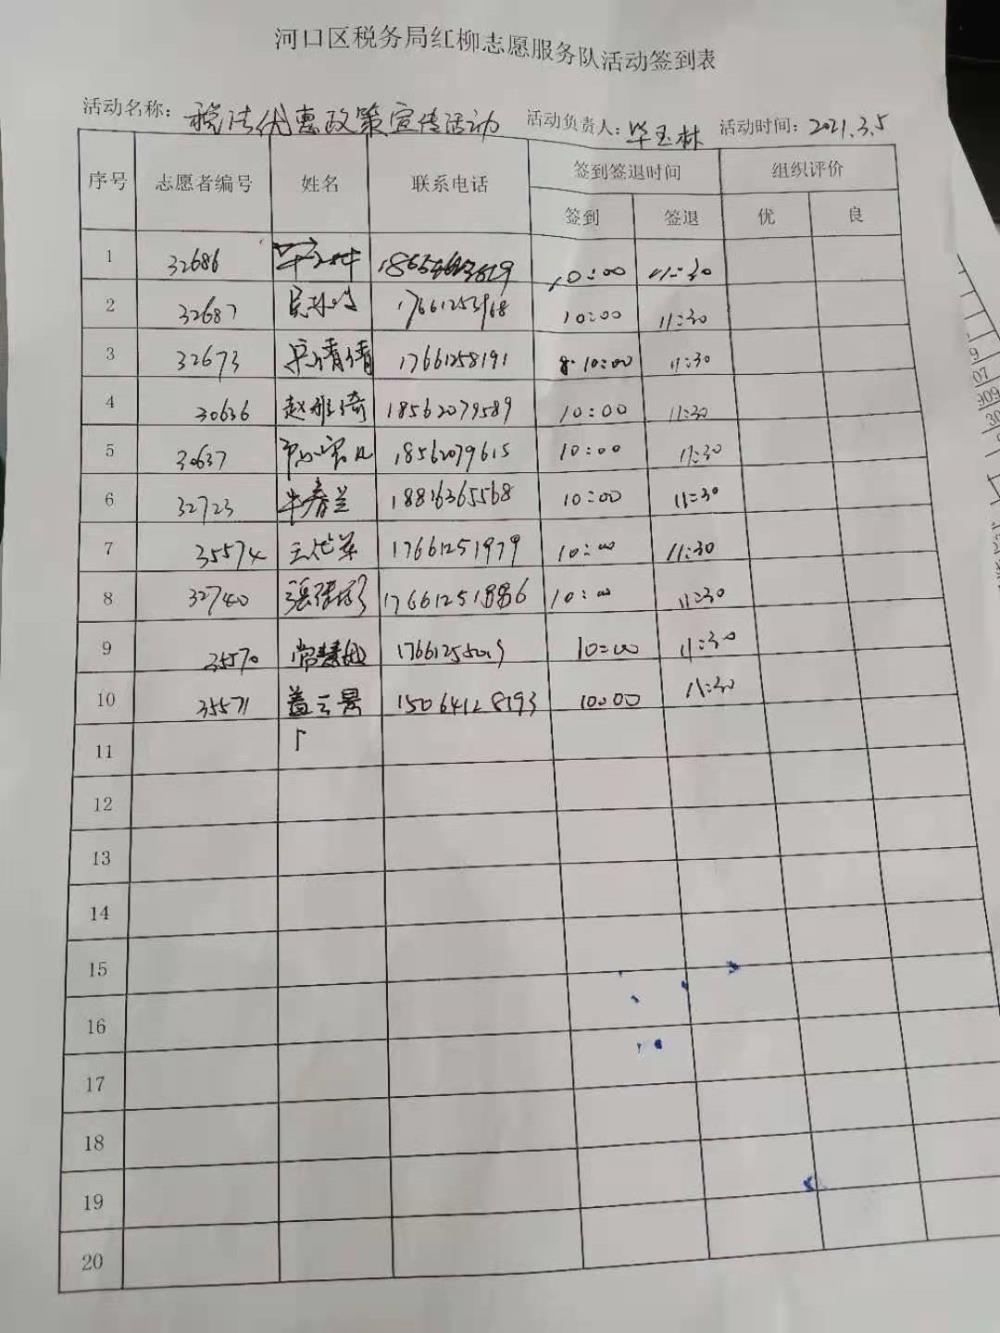 河口区税务局红柳志愿服务队活动签到表
活动名称: 税法优惠政策宣传活动 活动负责人: 毕玉林 活动时间: 2021.3.5
序号 志愿者编号 姓名 联系电话 签到签退时间 组织评价
签到 签退 优 良
1 32686 10:00 11:30
2 32687 17661253968 10:00 11:30
3 32673 17661258191 10:00 11:30
4 30636 18562079589 10:00 11:30
5 30637 18562079615 10:00 11:30
6 32723 牛春兰 18816365568 10:00 11:30
7 35574 17661251979 10:00 11:30
8 32740 17661251886 10:00 11:30
9 35570 常慧 10:00 11:30
10 35571 盖云景 15064128193 10:00 11:30
11
12
13
14
15
16
17
18
19
20
9
07
909
30